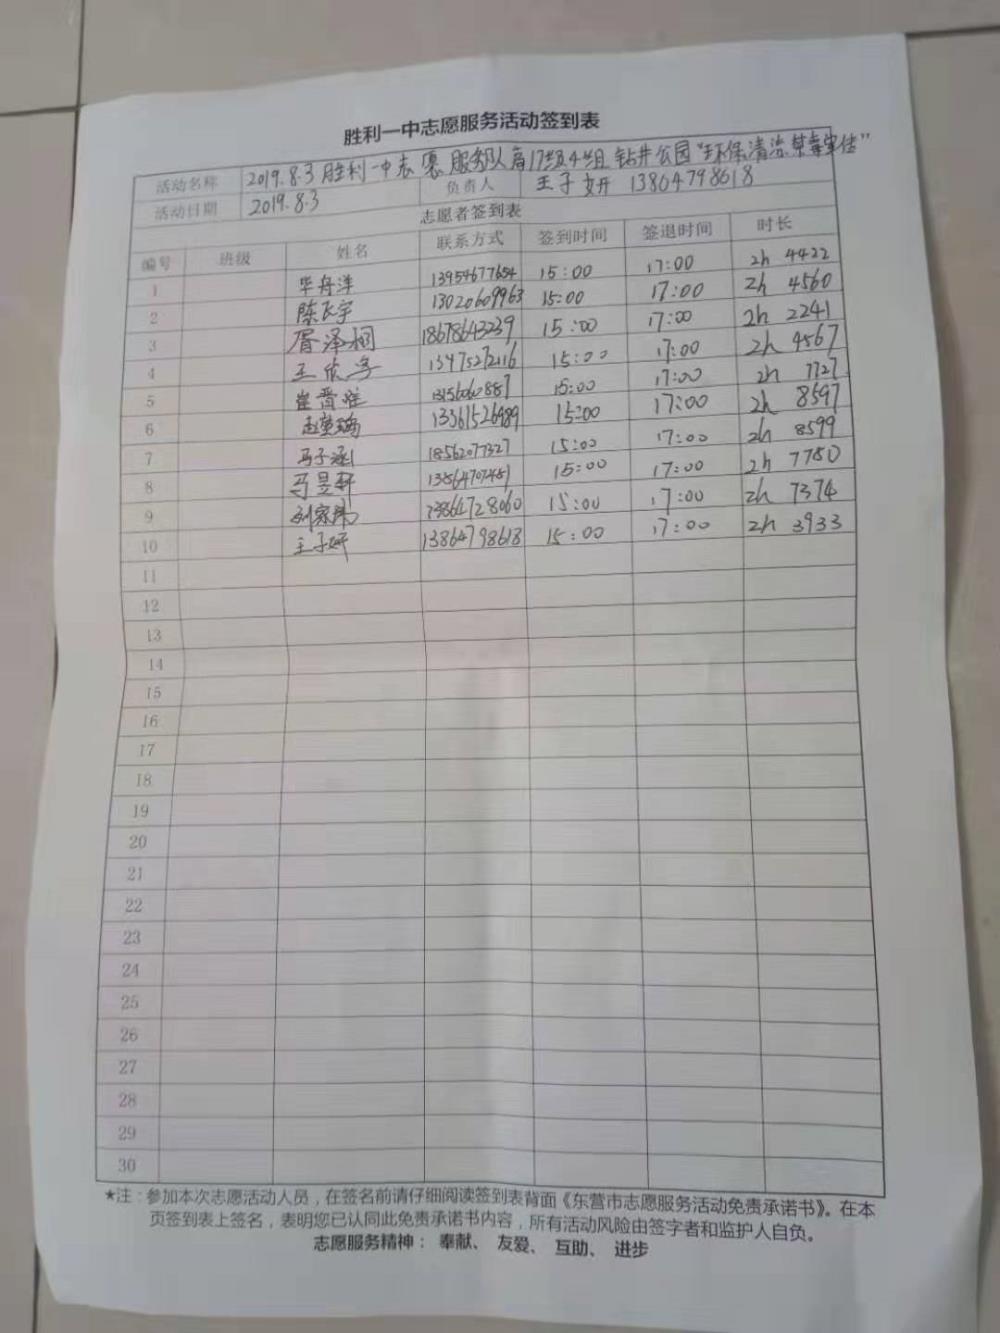 胜利一中志愿服务活动签到表
活动名称 2019.8.3 胜利一中志愿服务队高17级4组 钻井公园"环保清洁.禁毒宣传"
活动日期 2019.8.3 负责人 王子妍 13864798618
志愿者签到表
编号 班级 姓名 联系方式 签到时间 签退时间 时长
1 毕舟洋 13954677654 15:00 17:00 2h 4422
2 陈飞宇 13020609963 15:00 17:00 2h 4560
3 胥泽桐 18678643239 15:00 17:00 2h 2241
4 王欣宇 13475272116 15:00 17:00 2h 4567
5 崔晋 15:00 17:00 2h 7727
6 13361526989 15:00 17:00 2h 8597
7 马子涵 18562077327 15:00 17:00 2h 8599
8 马昱轩 15:00 17:00 2h 7780
9 刘家 13864728060 15:00 17:00 2h 7374
10 王子妍 13864798618 15:00 17:00 2h 3933
11
12
13
14
15
16
17
18
19
20
21
22
23
24
25
26
27
28
29
30
★注：参加本次志愿活动人员，在签名前请仔细阅读签到表背面《东营市志愿服务活动免责承诺书》。在本
页签到表上签名，表明您已认同此免责承诺书内容，所有活动风险由签字者和监护人自负。
志愿服务精神： 奉献、 友爱、 互助、 进步